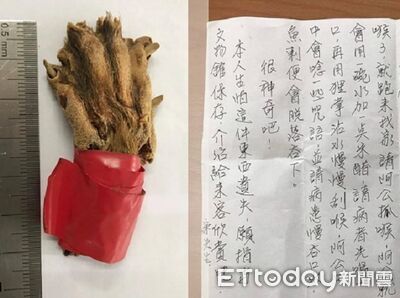 0.5 mm
喉了就跑來找家請阿公抓喉。阿公就
會用一碗水加一点米醋請病者先
口再用狸掌沾水慢慢刮喉,阿公
中會唸一些咒語並請病患慢吞口
魚刺便會脫落吞下。
很神奇吧!
本人生怕這件東西遺失,願捐
文物館保存,介紹給來客欣賞
ETtoday新聞雲